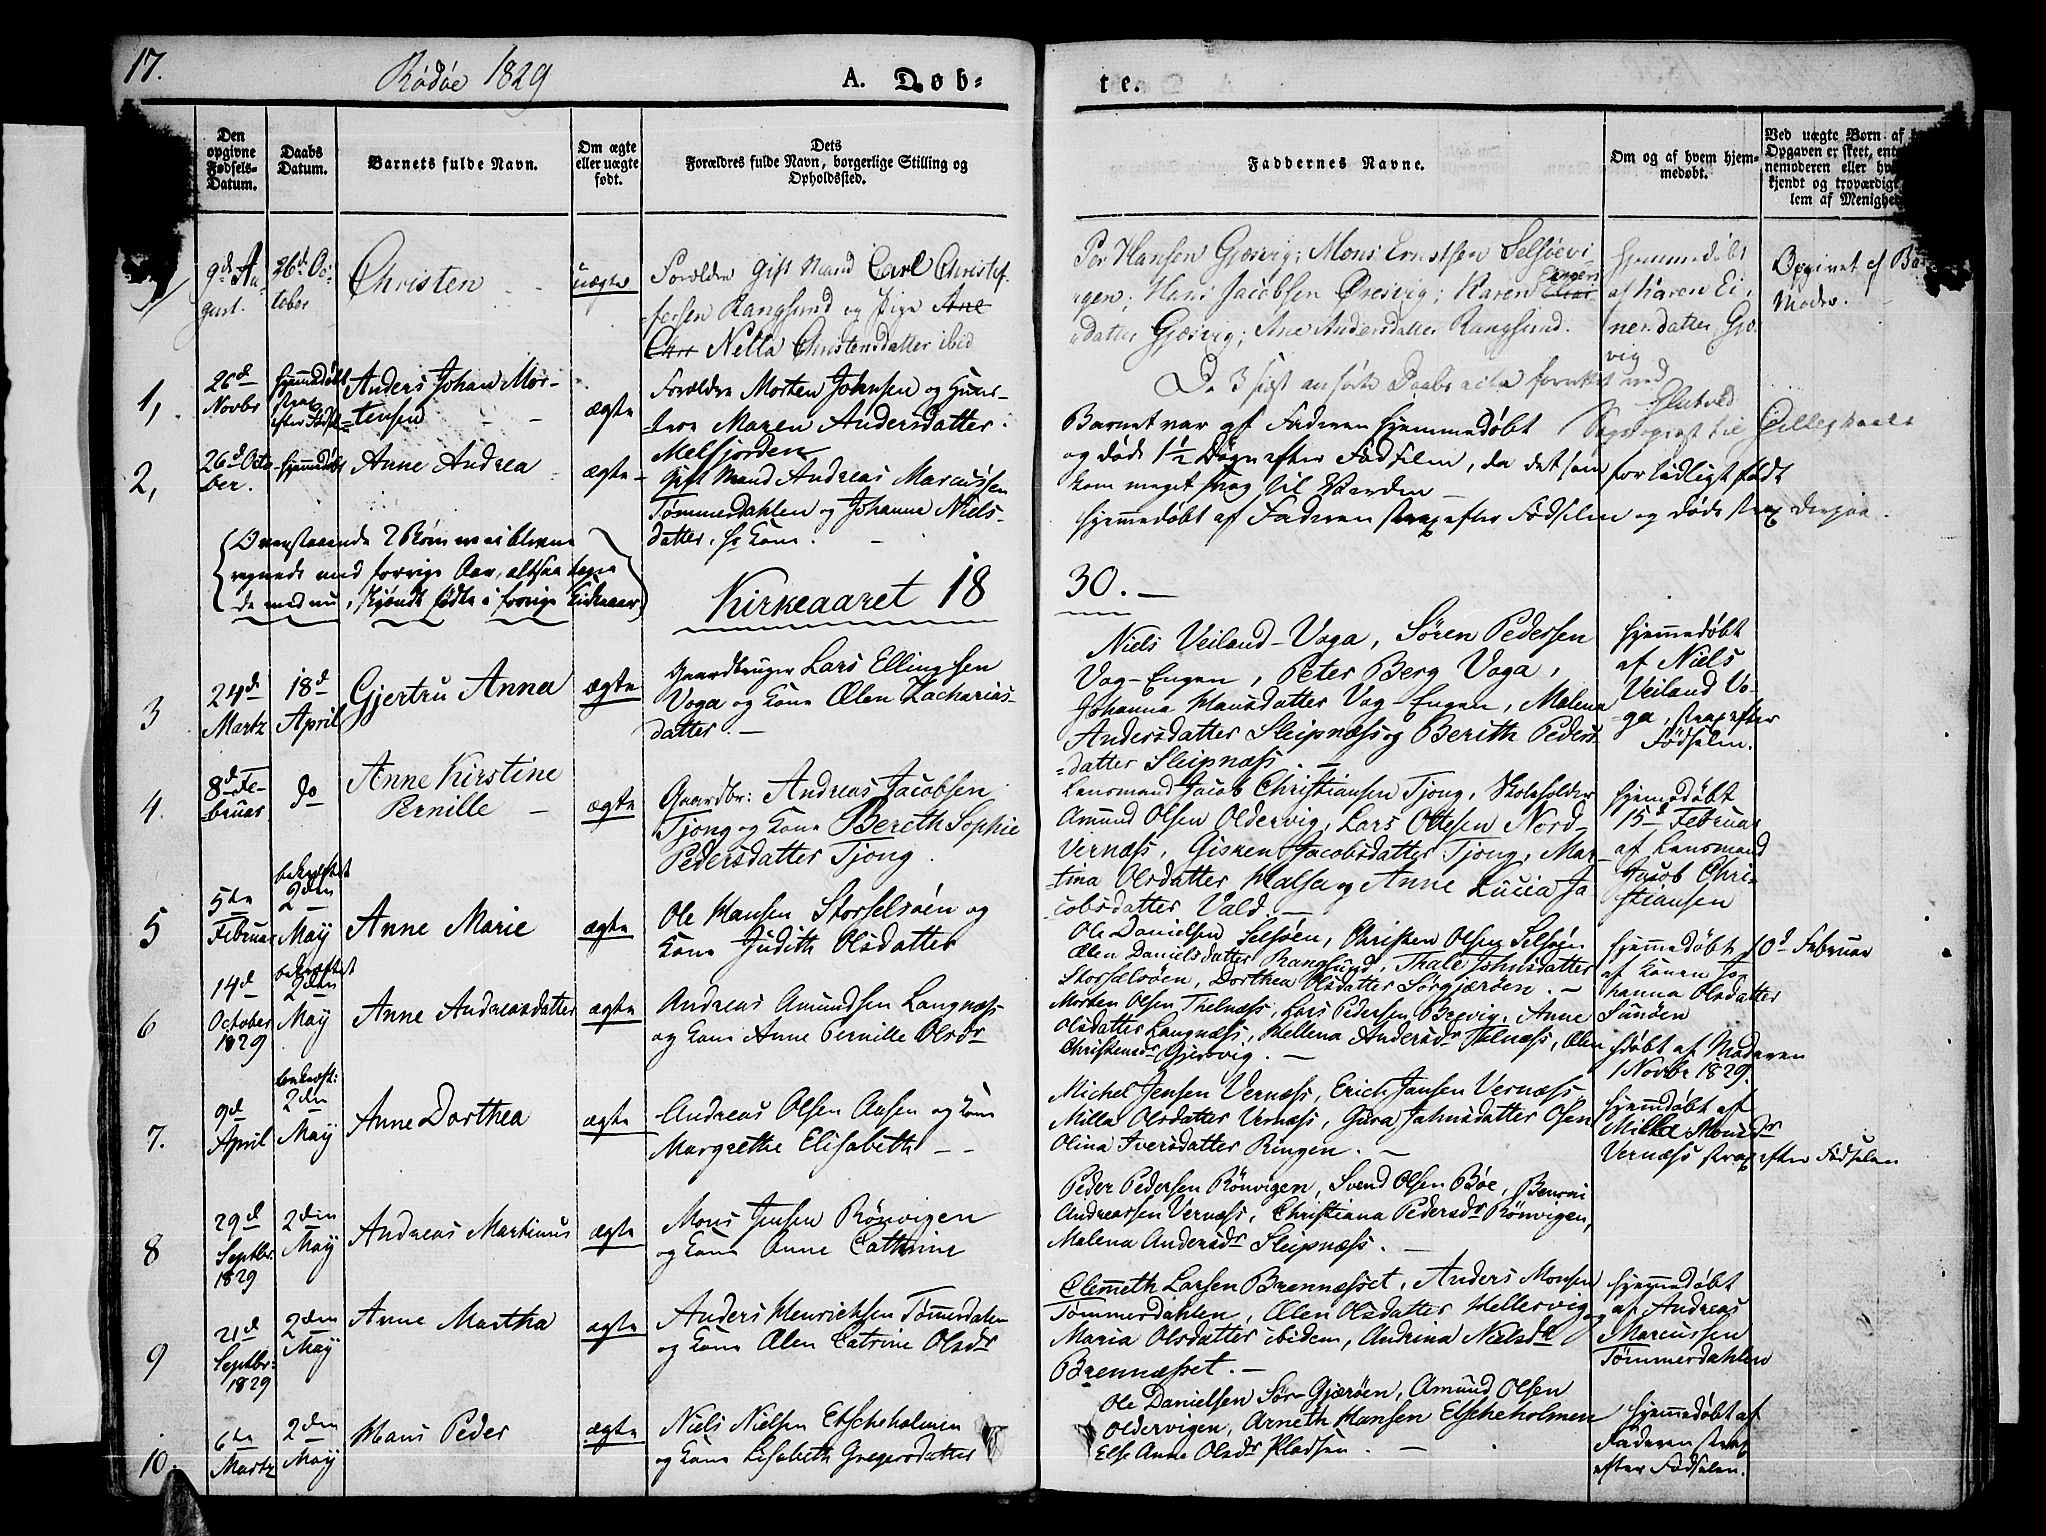 17.
Rödöe 1829
A. Døb-
te.
Den opgivne Fødsels-Datum.
Daabs Datum.
Barnets fulde Navn.
Om ægte eller uægte født.
Dets
Forældres fulde Navn, borgerlige Stilling og
Opholdssted.
Faddernes Navne.
Om og af hvem hjem-
medøbt.
Ved uægte Børn af
Opgaven er skeet, ent
nemoderen eller
kjendt og troværdigt
lem af Menighed
9de Au-
gust.
26d Oc-
tober
Christen
uægte
Forældre gift Mand Carl Christof-
fersen Rangsund og Pige Ane
Chr Nella Christensdatter ibid
Per Hansen Gjæsvig; Mons Ernstsen Selsøevi-
gen; Hans Jacobsen Øresvig; Karen
datter Gjæsvig; Ane Andersdatter Rangsund.
Hjemmedøbt
af Karen Ei-
nersdatter Gjæ-
vig
Opgivet af
Moder.
De 3 sidst anførte Daabsacta forrettet ved
1,
26d
Novbr
Hjemmedøbt
strax
efter Føds
Anders Johan Mor-
tensen
ægte
Forældre Morten Johnsen og Huus-
Maren Andersdatter
Melfjorden
Barnet var af Faderen hjemmedøbt
og døde 1½ Døgn efter Fødselen, da det som for tidligt født
kom meget svag til Verden
2,
26d Octo-
ber.
hjemmedøbt
Anne Andrea
ægte
Gift Mand Andreas Marcussen
Tømmerdahlen og Johanna Niels-
datter, hs Kone.
hjemmedøbt af Faderen strax efter Fødselen og døde strax derpaa.
Ovenstaaende 2 Børn
regnede med forrige Aar, altsaa tagne
de med nu, skjøndt fødte i forrige Kirkeaar
Kirkeaaret 18
30.
3
24d
Martz
18d
April
Gjertru Anna
ægte
Gaardbruger Lars Ellingsen
Voga og Kone Ælen Zacharias-
datter.
Niels Veiland Voga, Søren Pedersen
Vog-Engen, Peter Berg Voga,
Johanna Hansdatter Vog-Engen, Malena
Andersdatter Sleipnæss og Berith Peders-
datter Sleipnæss.
hjemmedøbt
af Niels
Veiland Vo-
ga, strax efter
Fødselen.
4.
8d Fe-
bruar
do
Anne Kirstine
Pernille
ægte
Gaardbr: Andreas Jacobsen
Tjong og Kone Bereth Sophie
Pedersdatter Tjong.
Lensmand Jacob Christiansen Tjong, Skoleholder
Amund Olsen Oldervig, Lars Ottesen Nord-
Vernæss, Gisken Jacobsdatter Tjong, Mar-
tina Olsdatter Halsa og Anne Lucia Ja-
cobsdatter Vald.
hjemmedøbt
15d Februar
af Lensmand
Jacob Chri-
stiansen
5
5te
Februar
bekræftet
2den
May
Anne Marie
ægte
Ole Hansen Storselsøen og
Kone Judith Olsdatter
Ole Danielsen Selsøen, Christen Olsen Selsøen
Ælen Danielsdatter Rangsund, Thale Johnsdatter
Storselsöen, Dorthea Olsdatter Sørgjærøen.
hjemmedøbt 10d Februar
af Konen Jo-
hanna Olsdatter
Sunöen
6
14d
October
1829
bekræftet
2den
May
Anne Andreasdatter
ægte
Andreas Amundsen Langnæss
og Kone Anne Pernille Olsdr
Morten Olsen Thelnæss, Lars Pedersen Brevig, Anne
Olsdatter Langnæss, Hellena Andersdr Thelnæss, Ælen
Christensdr Gjersvig.
hdøbt af Moderen
1 Novbr 1829.
7.
9d
April
bekræft:
2den
May
Anne Dorthea
ægte
Andreas Olsen Aasen og Kone
Margrethe Elisabeth
Michel Jensen Vernæss, Erich Jansen Vernæss,
Milla Olsdatter Vernæss, Gura Jahnsdatter Osen
Olina Iversdatter Ringen.
hjemmedøbt af
Milla Monsdr
Vernæss strax efter Fødselen
8
29d
Septbr.
1829
2den
May
Andreas Martinus
ægte
Mons Jensen Rönvigen
og Kone Anne Cathrine
Peder Pedersen Rönvigen, Svend Olsen Böe, Benoni
Andreassen Vernæss, Christiana Pedersdr Rönvigen,
Malena Andersdr Sleipnæss.
9
21d
Septbr:
1829
2den
May
Anne Martha
ægte
Anders Henrichsen Tömmerdalen
og Kone Ælen Catrine Olsdr
Clemeth Larsen Brennæsset, Anders Monsen
Tømmerdahlen, Ælen Olsdatter Hellervig og
Maria Olsdatter ibidem, Andrina Nielsdr
Brennæsset.
hjemmedøbt
af Andreas
Marcussen
Tømmerdahlen
10.
6te
Martz
2den
May
Hans Peder
ægte
Niels Nielsen Etscheholmen
og Kone Lisabeth Gregersdatter
Ole Danielsen Sör-Gjærøen, Amund Olsen
Oldervigen, Arneth Hansen Etscheholmen
Else Anne Olsdr Pladsen.
hjemmedøbt af
Faderen strax
efter Fødselen.